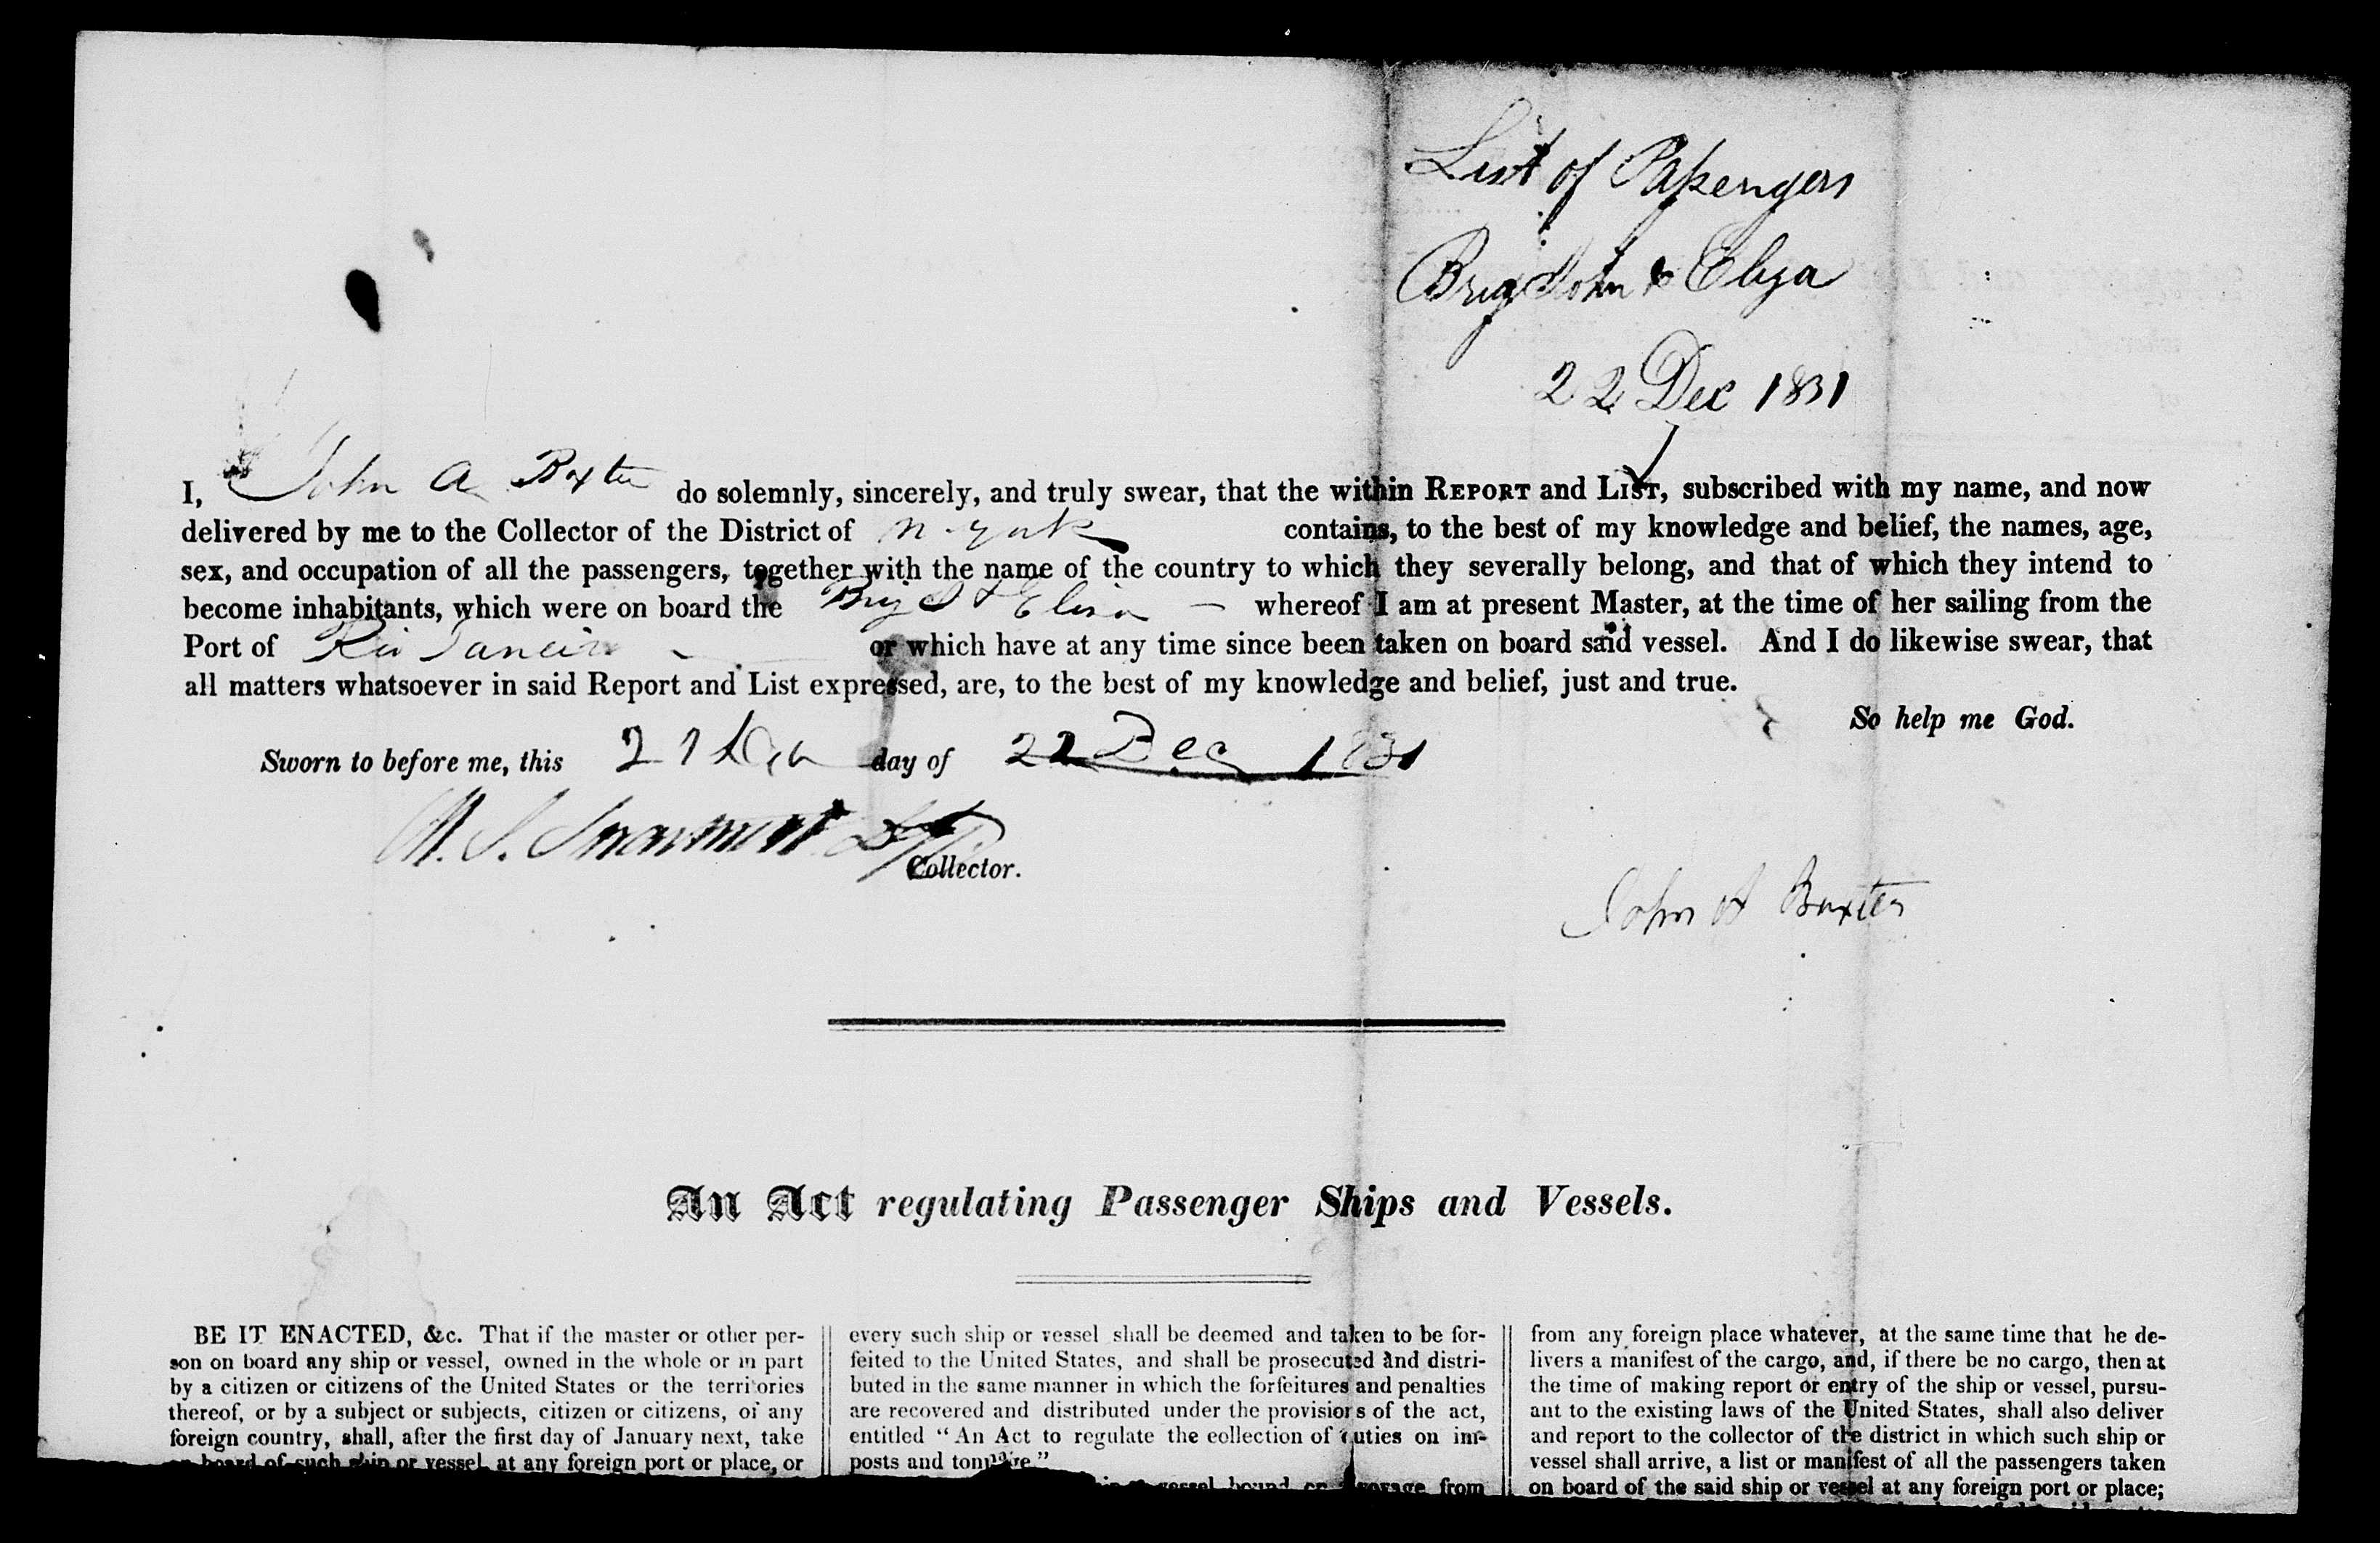 List of Passengers
Brig John & Eliza
22 Dec 1831
I, John A Baxter do solemnly, sincerely, and truly swear, that the within REPORT and LIST, subscribed with my name, and now
delivered by me to the Collector of the District of N. York contains, to the best of my knowledge and belief, the names, age,
sex, and occupation of all the passengers, together with the name of the country to which they severally belong, and that of which they intend to
become inhabitants, which were on board the Brig J & Eliza — whereof I am at present Master, at the time of her sailing from the
Port of Rio Janeiro or which have at any time since been taken on board said vessel. And I do likewise swear, that
all matters whatsoever in said Report and List expressed, are, to the best of my knowledge and belief, just and true.
So help me God.
Sworn to before me, this day of 22 Dec 1831
Collector.
John A Baxter
An Act regulating Passenger Ships and Vessels.
BE IT ENACTED, &c. That if the master or other per-
son on board any ship or vessel, owned in the whole or in part
by a citizen or citizens of the United States or the territories
thereof, or by a subject or subjects, citizen or citizens, of any
foreign country, shall, after the first day of January next, take
on board of such ship or vessel, at any foreign port or place, or
every such ship or vessel shall be deemed and taken to be for-
feited to the United States, and shall be prosecuted and distri-
buted in the same manner in which the forfeitures and penalties
are recovered and distributed under the provisions of the act,
entitled "An Act to regulate the collection of duties on im-
posts and tonnage."
vessel bound on a voyage from
from any foreign place whatever, at the same time that he de-
livers a manifest of the cargo, and, if there be no cargo, then at
the time of making report or entry of the ship or vessel, pursu-
ant to the existing laws of the United States, shall also deliver
and report to the collector of the district in which such ship or
vessel shall arrive, a list or manifest of all the passengers taken
on board of the said ship or vessel at any foreign port or place;